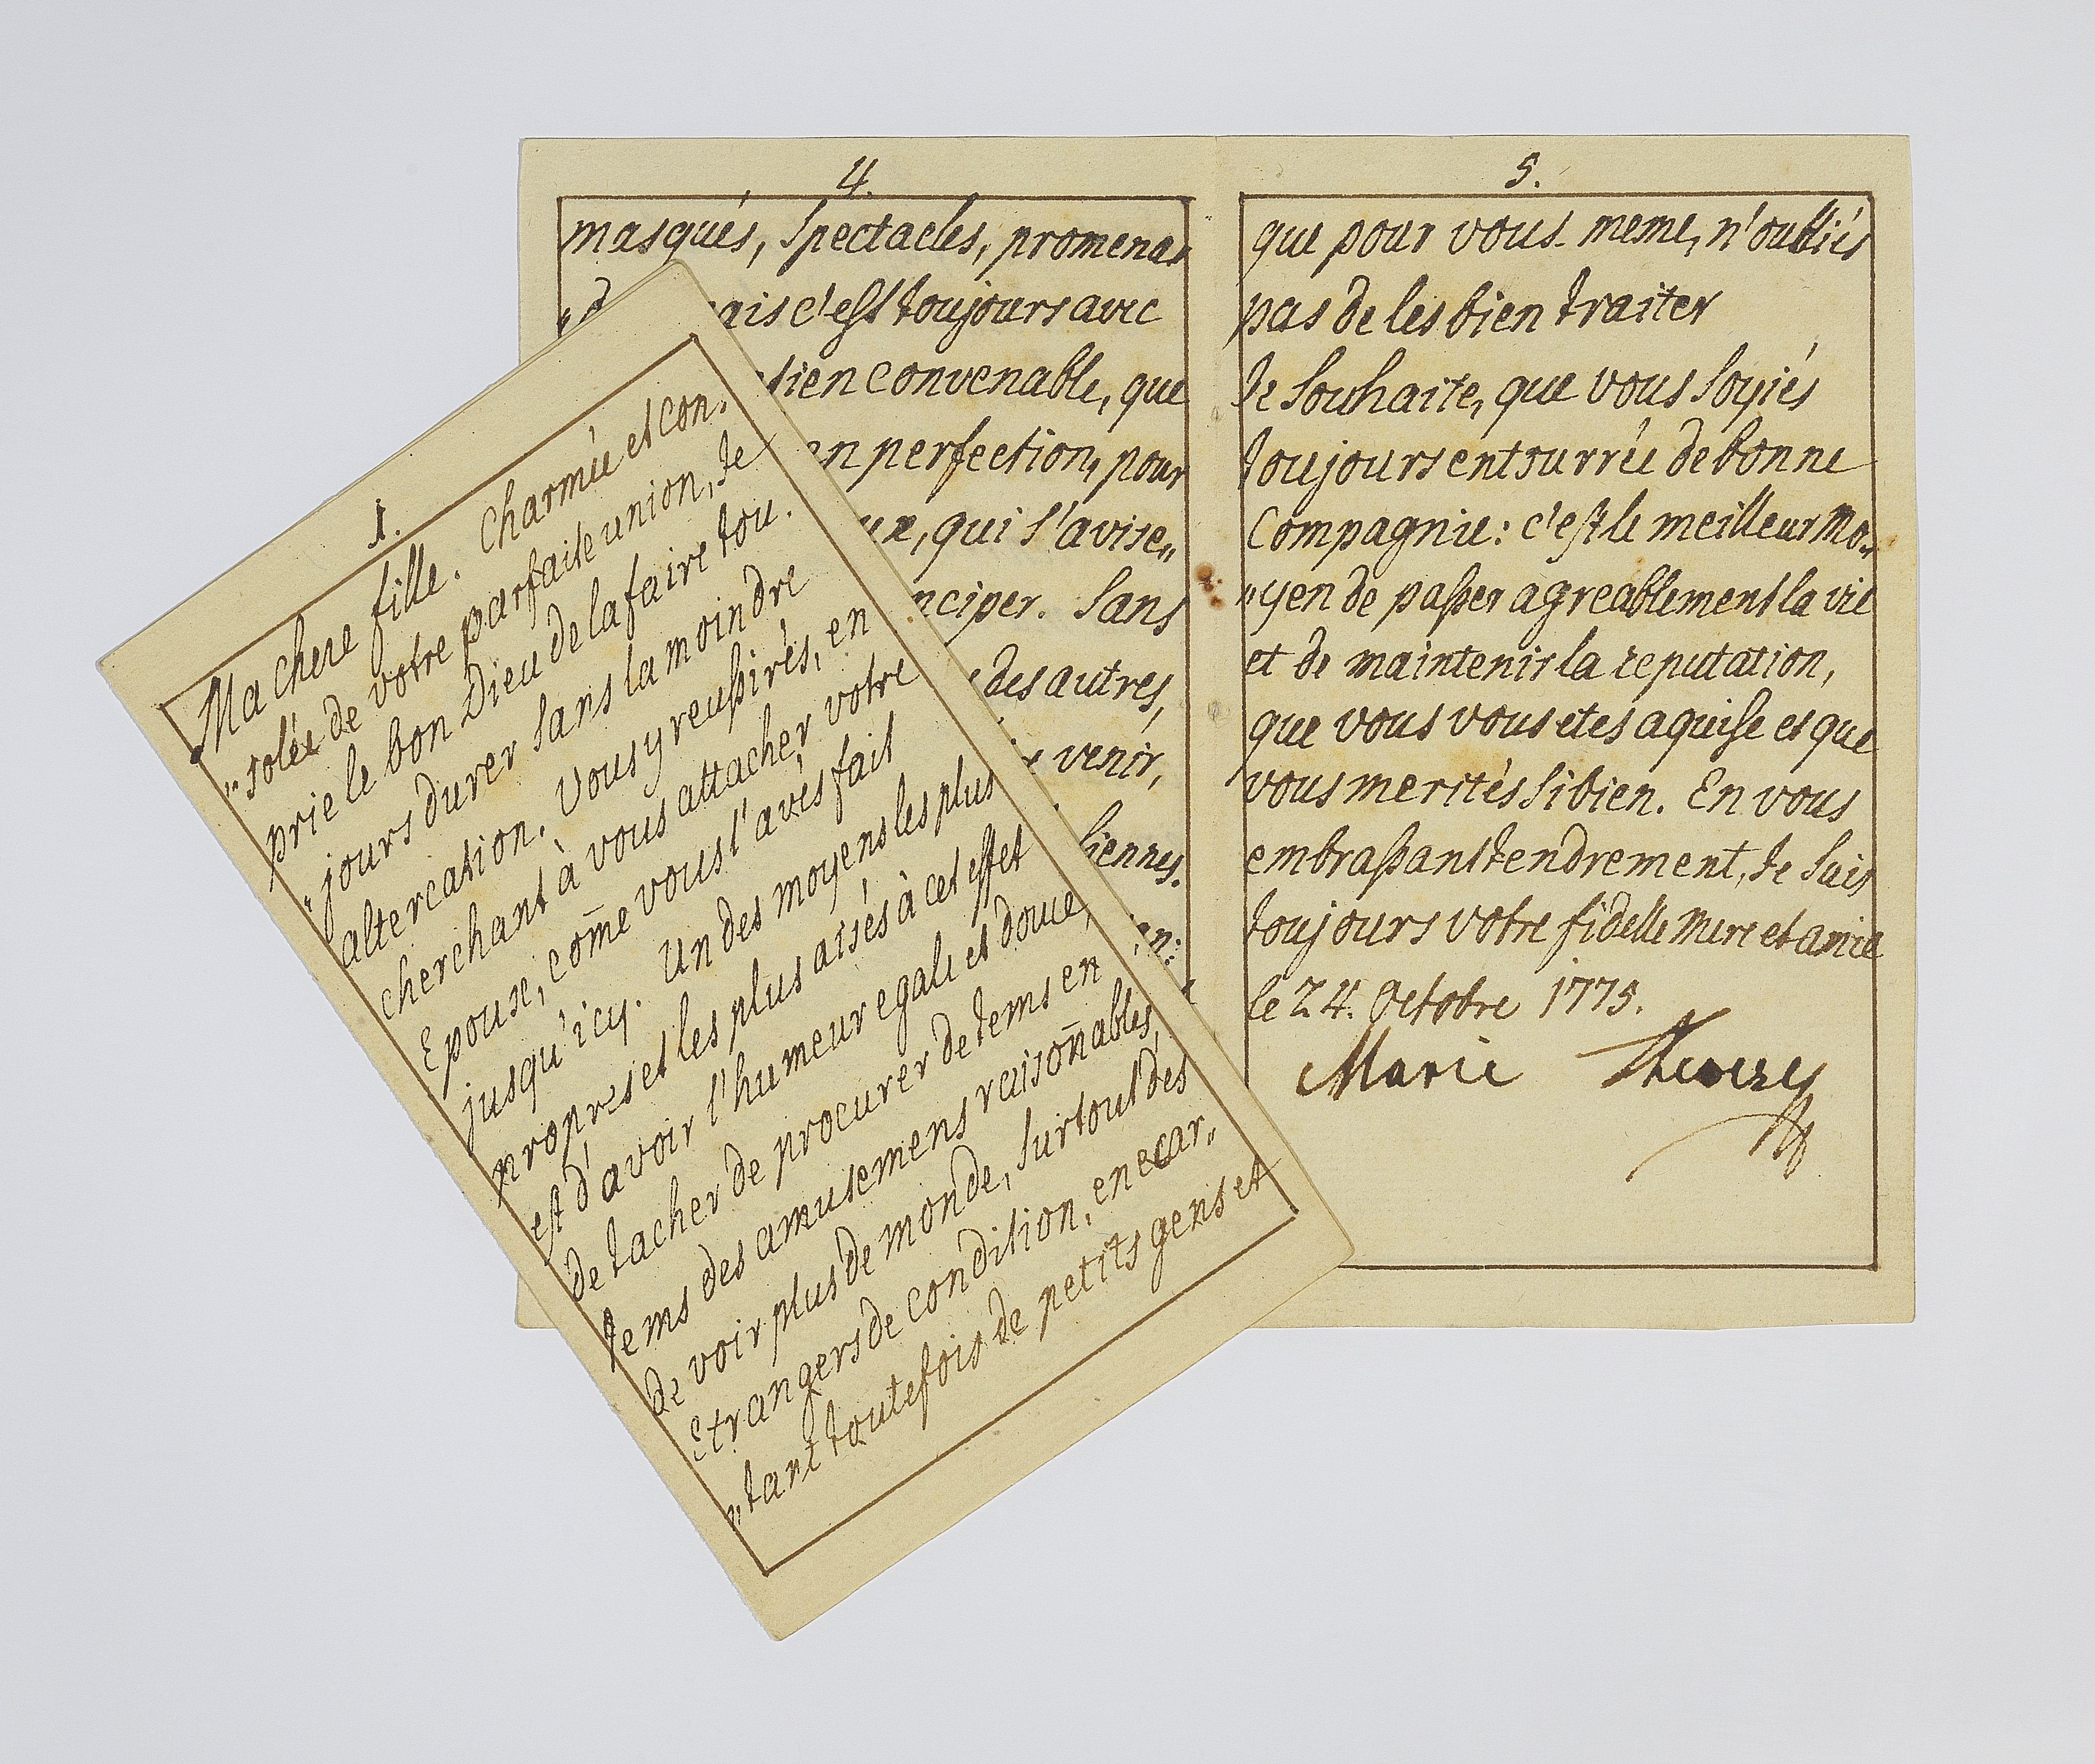 1.
Ma chere fille. Charmée et con„
„solée de votre parfaite union, Je
prie le bon Dieu de la faire tou„
„jours durer sans la moindre
altercation. Vous y reußirés, en
cherchant à vous attacher votre
Epoux, com̄e vous l'avés fait
jusqu'icy. Un des moyens les plus
propres et les plus aisés à cet effet
est d'avoir l'humeur egale et douce,
de tacher de procurer de tems en
tems des amusemens raison̄ables,
de voir plus de monde, surtout des
Etrangers de condition, en ecar„
„tant toutefois de petits gens et
4.
masqués, Spectacles, promena„
„d
ais c'est toujours avec
tien convenable, que
en perfection, pour
ux, qui s'avise„
nciper. Sans
des autres,
venir,
siennes.
en:
5.
que pour vous-meme, n'oubliés
pas de les bien traiter
Je souhaite, que vous soyiés
toujours entourrée de bonne
Compagnie: c'est le meilleur mo„
„yen de paßer agreablement la vie
et de maintenir la reputation,
que vous vous etes aquise et que
vous merités si bien. En vous
embraßant tendrement, Je suis
toujours votre fidelle Mere et amie
le 24. Octobre 1775.
Marie Therese